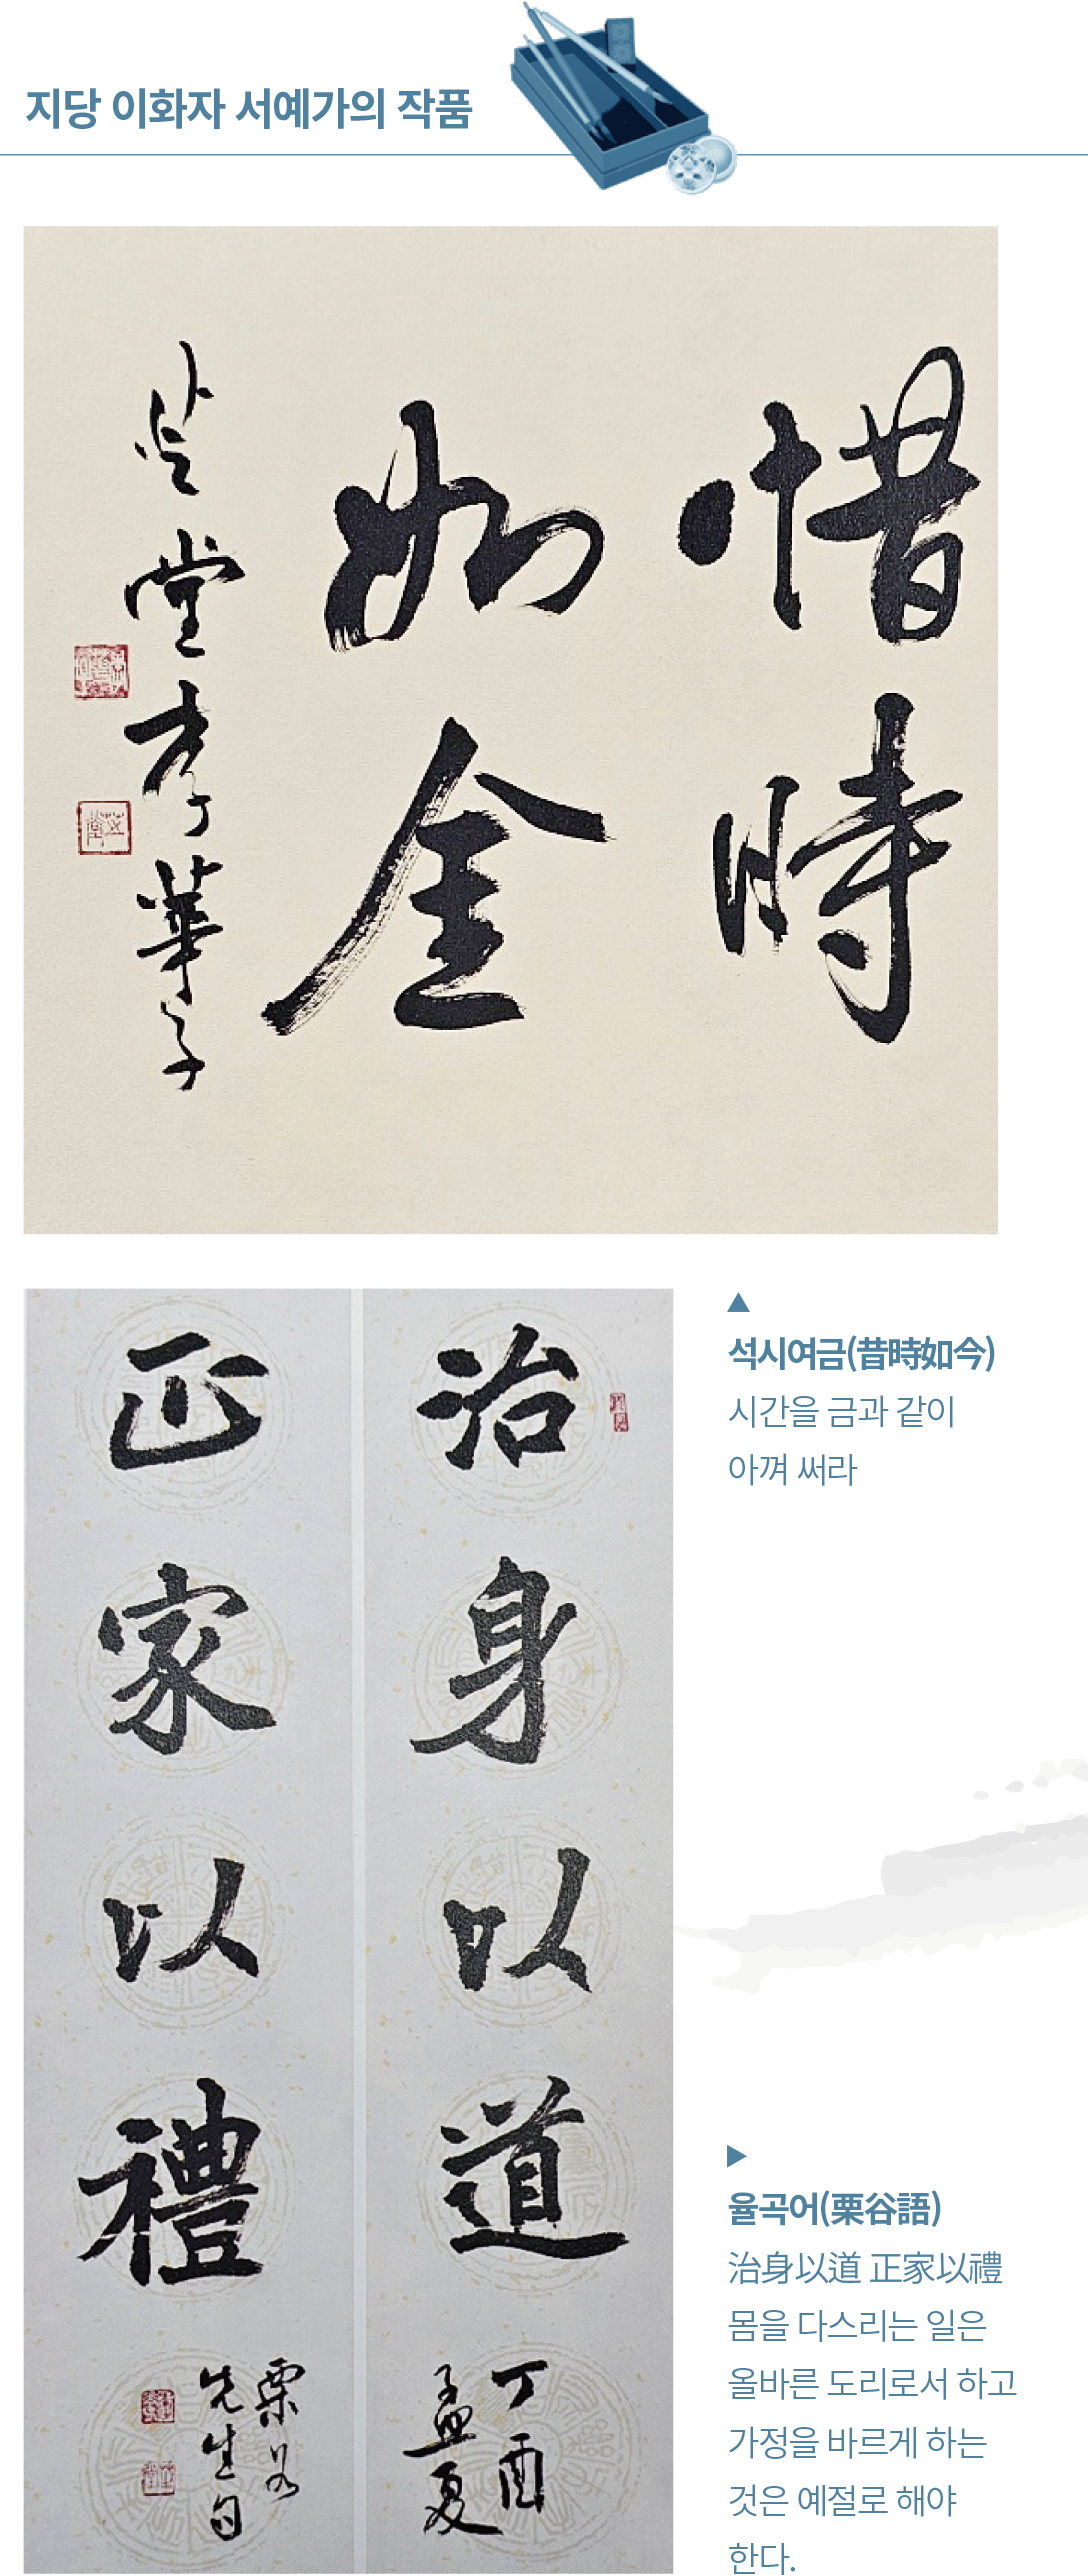 지당 이화자 서예가의 작품
惜時
如金
芝堂 李華子
석시여금(昔時如今)
시간을 금과 같이
아껴 써라
治身以道
丁酉
孟夏
正家以禮
栗谷
先生句
율곡어(栗谷語)
治身以道 正家以禮
몸을 다스리는 일은
올바른 도리로서 하고
가정을 바르게 하는
것은 예절로 해야
한다.